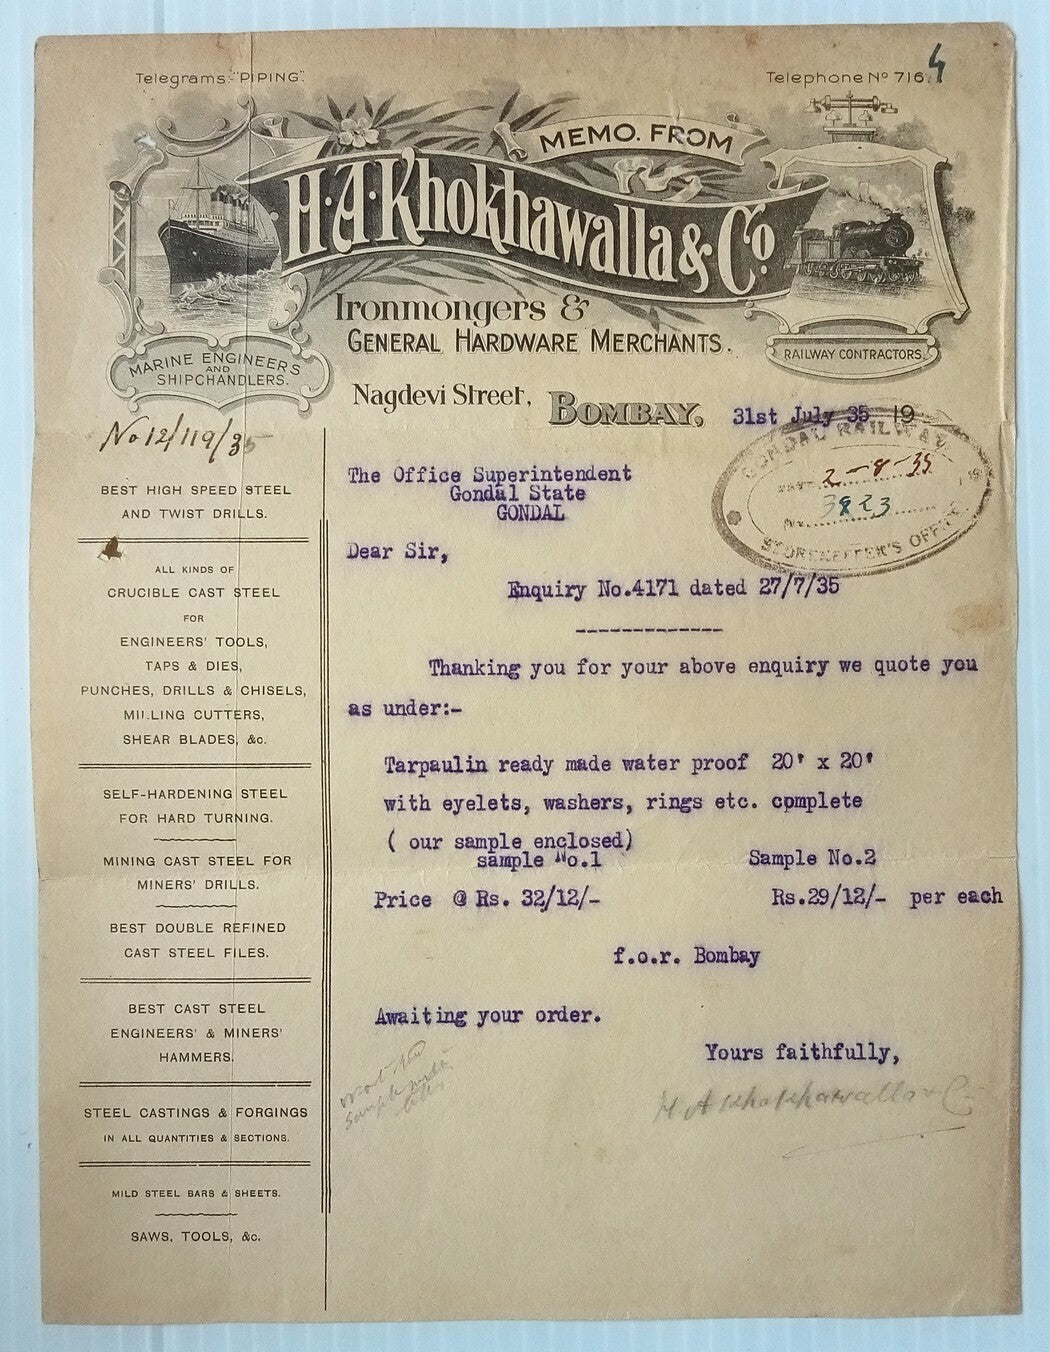 Telegrams:-"PIPING".
Telephone No 716.
4
MEMO. FROM
H.A.Khokhawalla & Co.
Ironmongers &
GENERAL HARDWARE MERCHANTS.
MARINE ENGINEERS
AND
SHIPCHANDLERS.
RAILWAY CONTRACTORS.
Nagdevi Street, BOMBAY, 31st July 35 19
No 12/119/35
GONDAL RAILWAY
2-8-35
No. 3823
STOREKEEPER'S OFFICE
BEST HIGH SPEED STEEL
AND TWIST DRILLS.
ALL KINDS OF
CRUCIBLE CAST STEEL
FOR
ENGINEERS' TOOLS,
TAPS & DIES,
PUNCHES, DRILLS & CHISELS,
MILLING CUTTERS,
SHEAR BLADES, &c.
SELF-HARDENING STEEL
FOR HARD TURNING.
MINING CAST STEEL FOR
MINERS' DRILLS.
BEST DOUBLE REFINED
CAST STEEL FILES.
BEST CAST STEEL
ENGINEERS' & MINERS'
HAMMERS.
STEEL CASTINGS & FORGINGS
IN ALL QUANTITIES & SECTIONS.
MILD STEEL BARS & SHEETS.
SAWS, TOOLS, &c.
The Office Superintendent
Gondal State
GONDAL
Dear Sir,
Enquiry No.4171 dated 27/7/35
-------------
Thanking you for your above enquiry we quote you
as under:-
Tarpaulin ready made water proof 20' x 20'
with eyelets, washers, rings etc. complete
( our sample enclosed)
sample No.1 Sample No.2
Price @ Rs. 32/12/- Rs.29/12/- per each
f.o.r. Bombay
Awaiting your order.
Yours faithfully,
H. A Khokhawalla & Co
sample